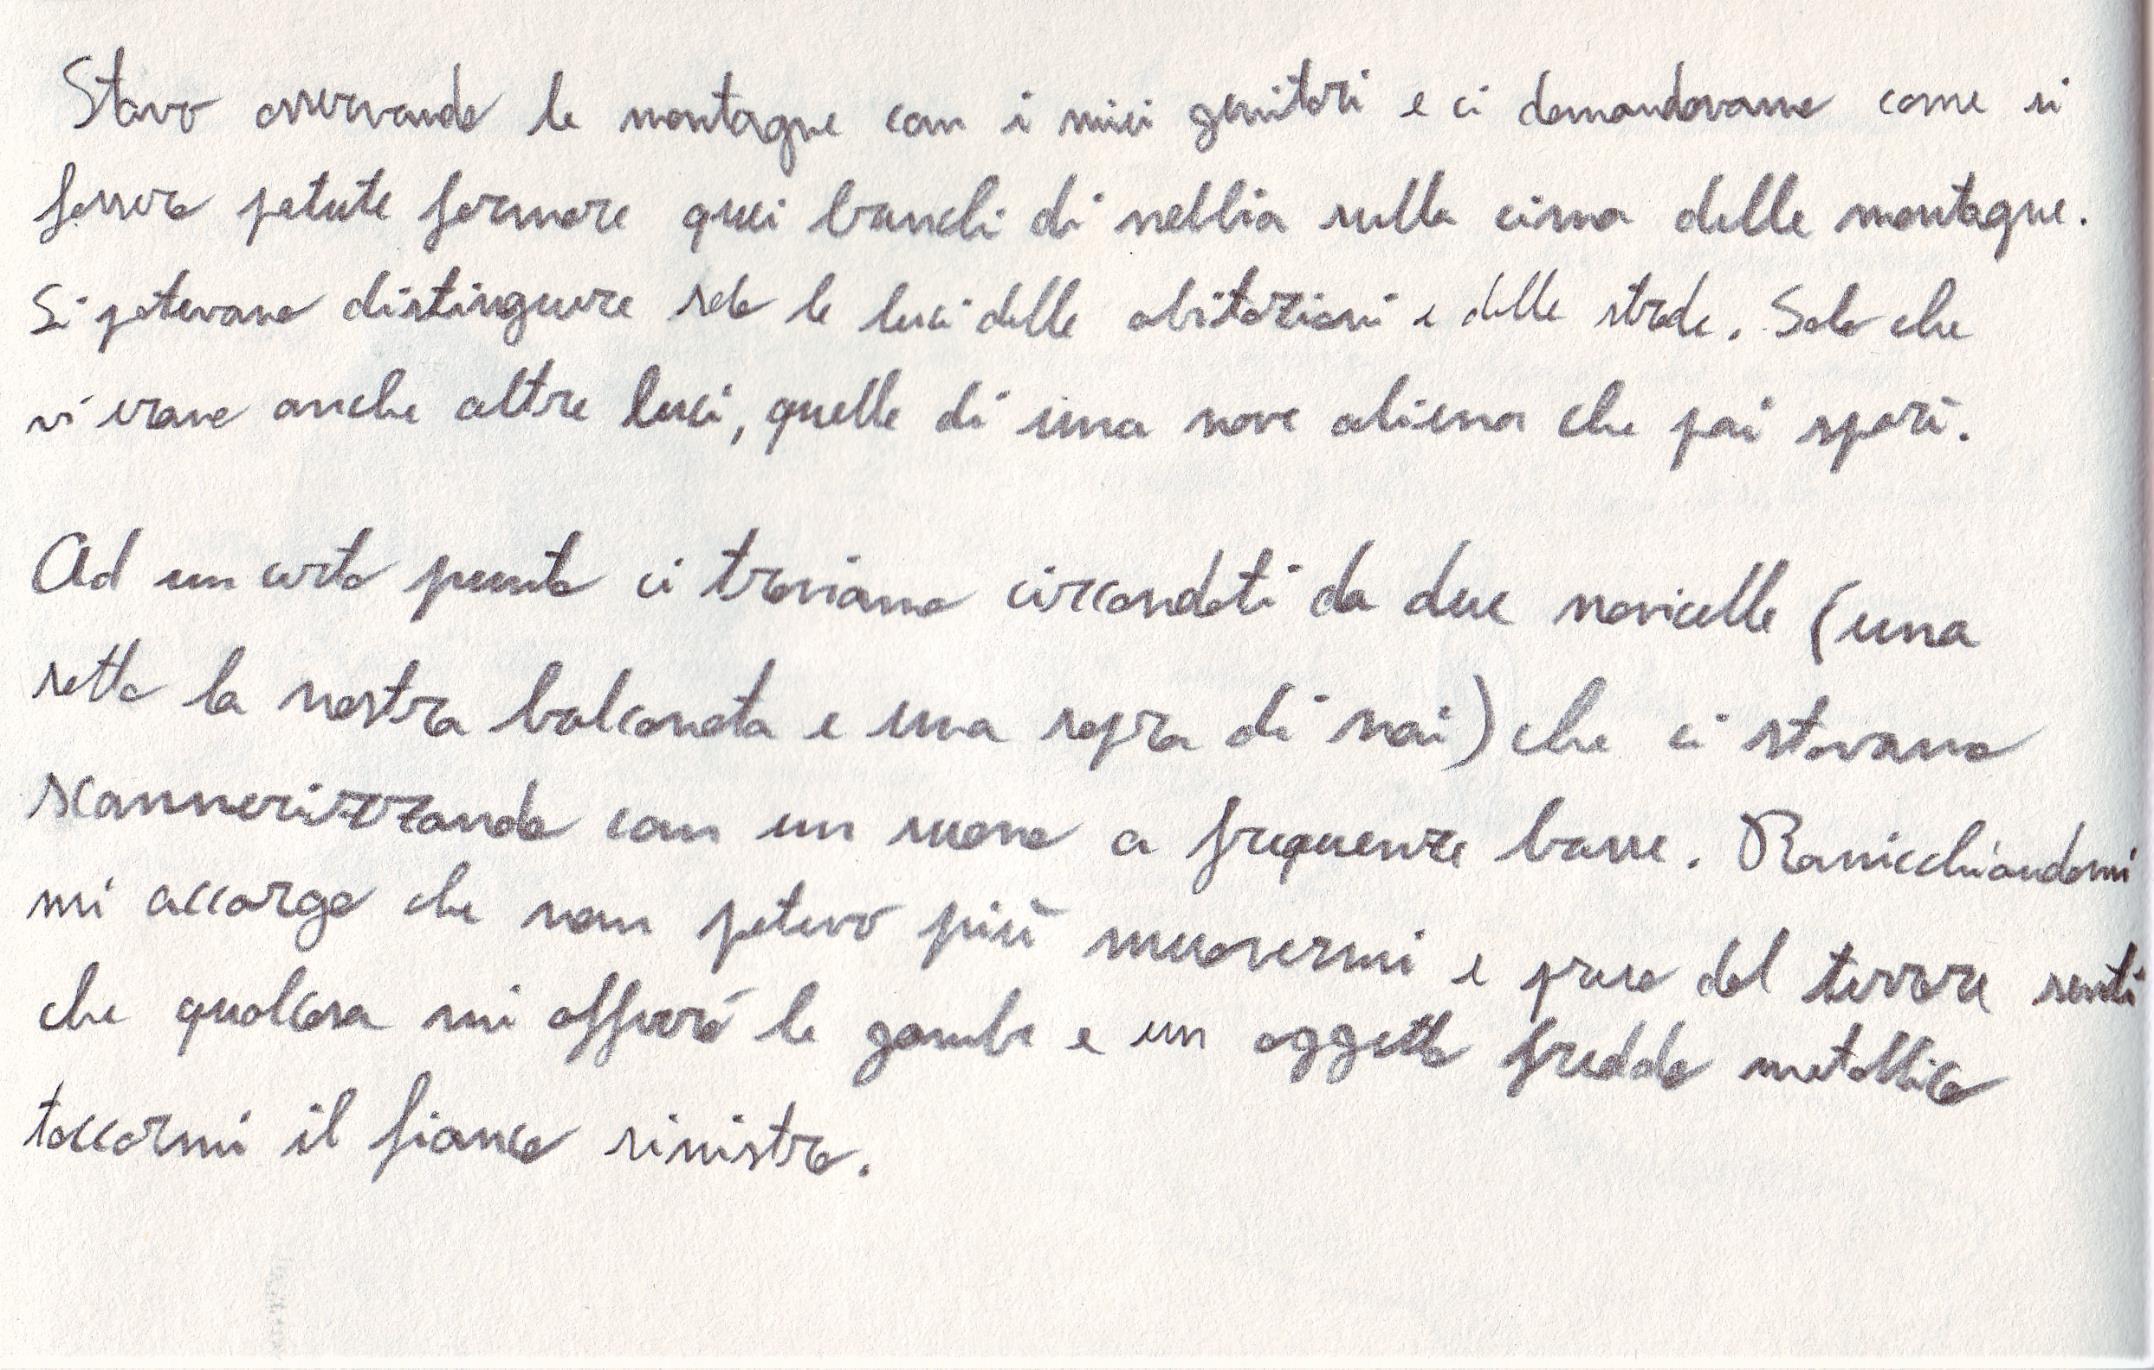 Stavo osservando le montagne con i miei genitori e ci domandavamo come si
fossero potute formare quei banchi di nebbia sulla cima delle montagne.
Si potevano distinguere solo le luci delle abitazioni e delle strade. Solo che
vi erano anche altre luci, quelle di una nave aliena che poi sparì.
Ad un certo punto ci troviamo circondati da due navicelle (una
sotto la nostra balconata e una sopra di noi) che ci stavano
scannerizzando con un suono a frequenze basse. Rannicchiandomi
mi accorgo che non potevo più muovermi e preso dal terrore sentì
che qualcosa mi afferrò le gambe e un oggetto freddo metallico
toccarmi il fianco sinistro.